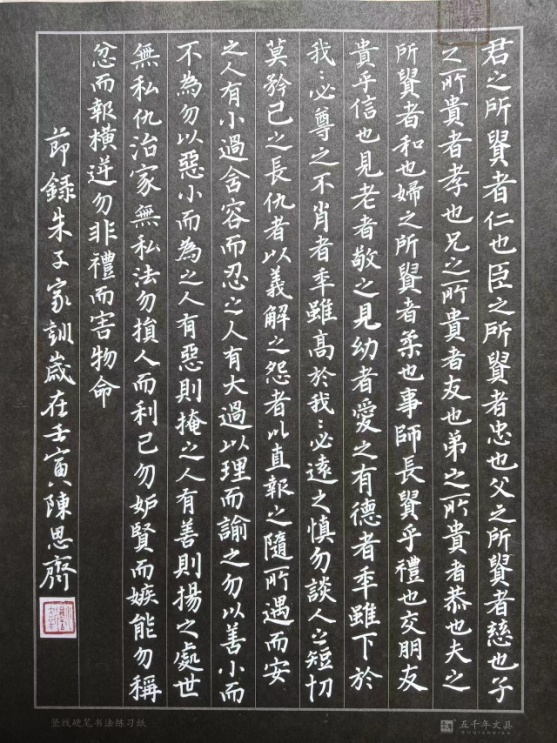 君之所貴者仁也臣之所貴者忠也父之所貴者慈也子
之所貴者孝也兄之所貴者友也弟之所貴者恭也夫之
所貴者和也婦之所貴者柔也事師長貴乎禮也交朋友
貴乎信也見老者敬之見幼者愛之有德者年雖下於
我〻必尊之不肖者年雖高於我〻必遠之慎勿談人之短切
莫矜己之長仇者以義解之怨者以直報之隨所遇而安
之人有小過含容而忍之人有大過以理而諭之勿以善小而
不為勿以惡小而為之人有惡則掩之人有善則揚之處世
無私仇治家無私法勿損人而利己勿妒賢而嫉能勿稱
忿而報橫逆勿非禮而害物命
節錄朱子家訓歲在壬寅陳思齊
竖线硬笔书法练习纸
五千年文具
WUQIANNIAN